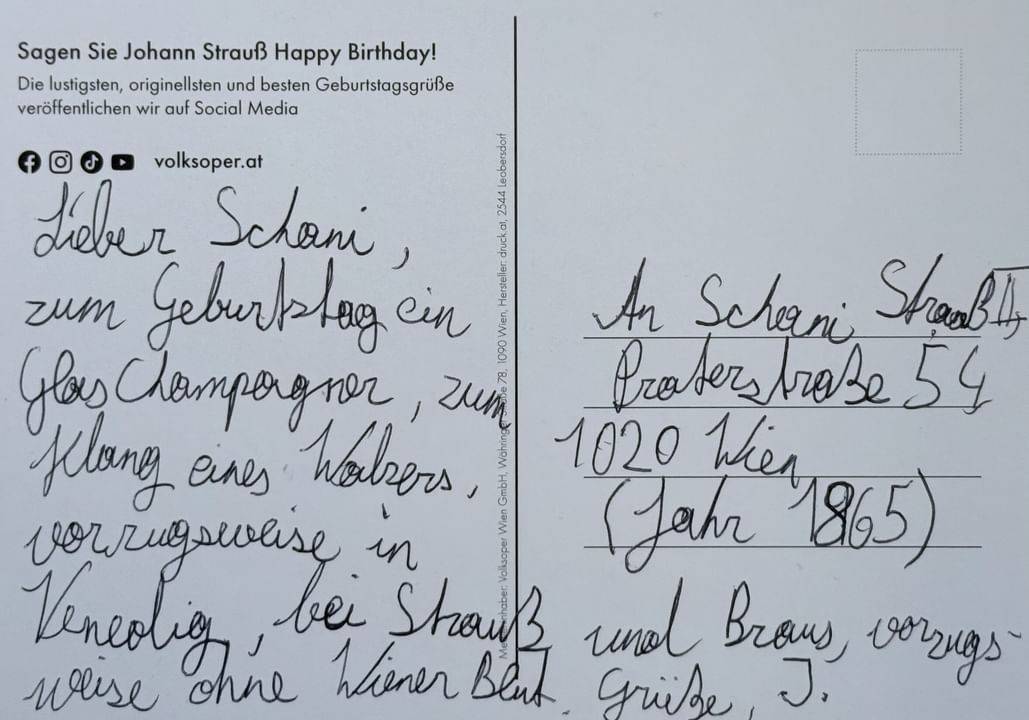 Sagen Sie Johann Strauß Happy Birthday!
Die lustigsten, originellsten und besten Geburtstagsgrüße
veröffentlichen wir auf Social Media
volksoper.at
Lieber Schani,
zum Geburtstag ein
Glas Champagner, zum
Klang eines Walzers,
vorzugsweise in
Venedig, bei Strauß und Braus, vorzugs-
weise ohne Wiener Blut. Grüße, J.
Medieninhaber: Volksoper Wien GmbH, Währinger Straße 78, 1090 Wien, Hersteller: druck.at, 2544 Leobersdorf
An Schani Strauß II,
Praterstraße 54
1020 Wien
(Jahr 1865)